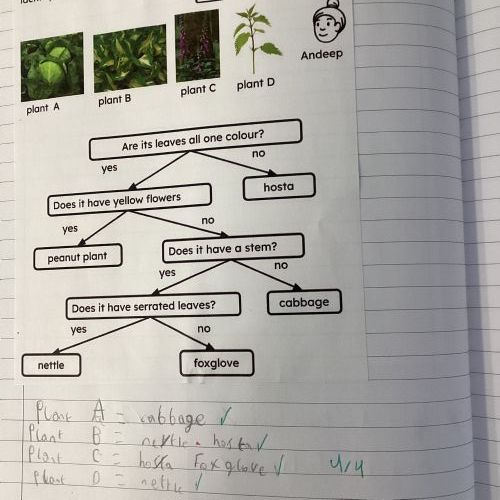 plant A
plant B
plant C
plant D
Andeep
Are its leaves all one colour?
yes
no
hosta
Does it have yellow flowers
yes
no
peanut plant
Does it have a stem?
yes
no
Does it have serrated leaves?
cabbage
yes
no
nettle
foxglove
Plant A = cabbage ✓
Plant B = nettle hosta ✓
Plant C = hosta Foxglove ✓ 4/4
Plant D = nettle ✓